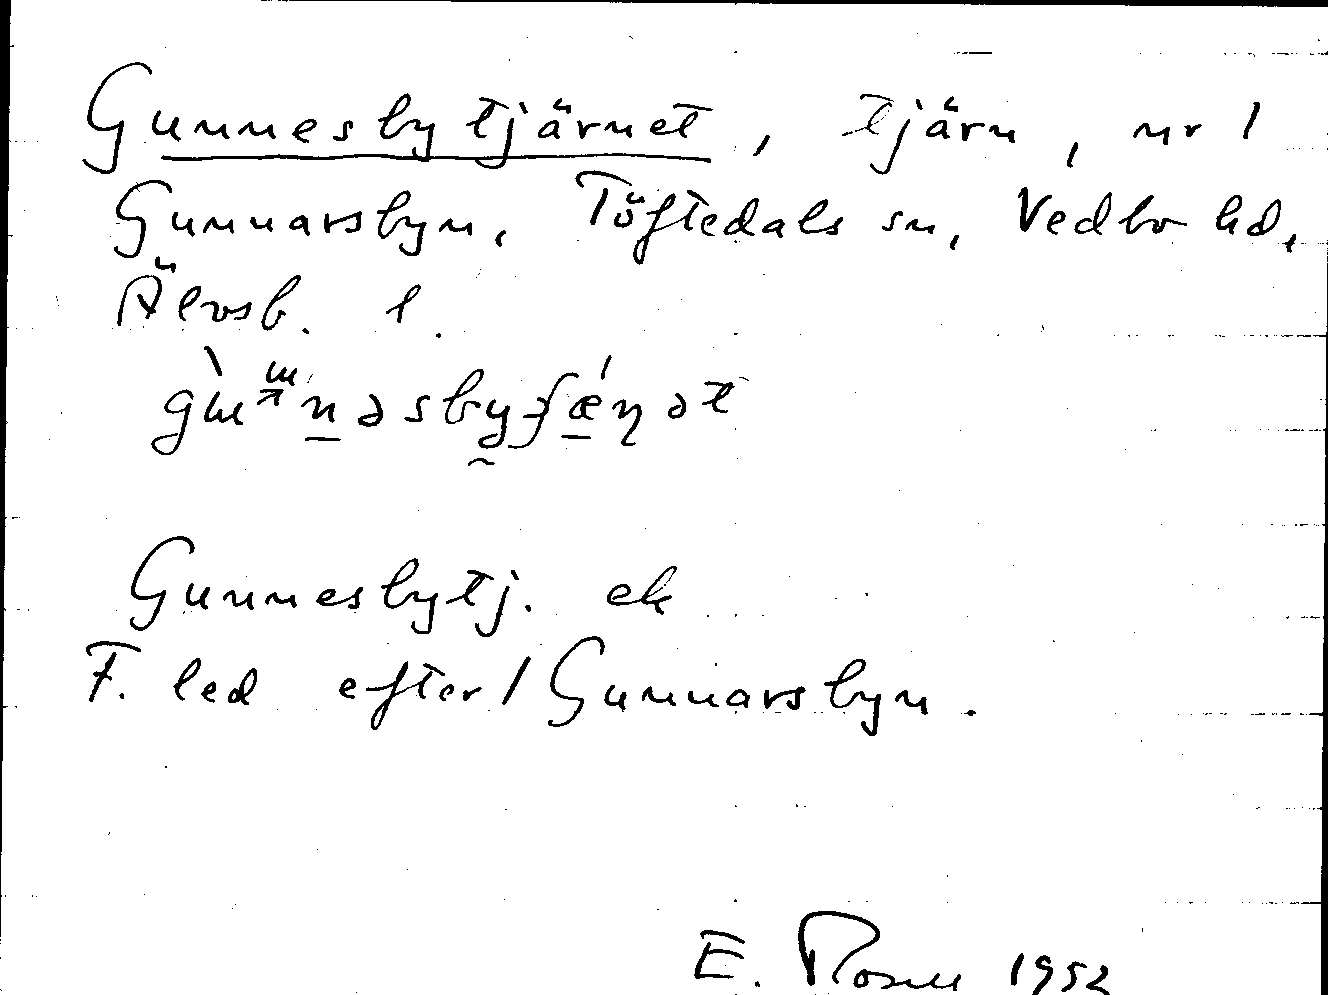 Gunnesbytjärnet, tjärn, nr 1
Gunnarsbyn, Töftedals sn, Vedbo hd,
Älvsb. l.
Gunnesbytj. ek
F. led efter / Gunnarsbyn.
E. Rosell 1952